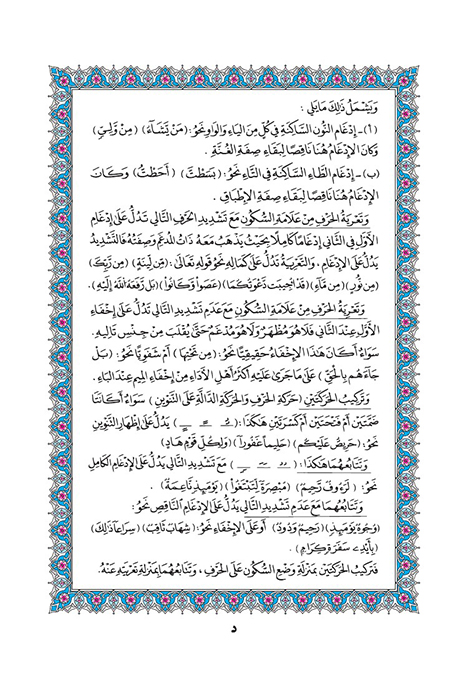 وَيَشْمَلُ ذَلِكَ مَا يَلِي :
(أ)- إِدْغَام النُّون السَّاكِنَة فِي كُلٍّ مِنَ اليَاءِ وَالوَاوِ نَحْوُ: (مَن يَشَآءُ) (مِن وَلِيٍّ)
وَكَانَ الإِدْغَامُ هُنَا نَاقِصًا لِبَقَاءِ صِفَةِ الغُنَّةِ .
(ب)- إِدْغَام الطَّاءِ السَّاكِنَةِ فِي التَّاءِ نَحْوُ: (بَسَطتَ) (أَحَطتُ) وَكَانَ
الإِدْغَامُ هُنَا نَاقِصًا لِبَقَاءِ صِفَةِ الإِطْبَاقِ .
وَتَعْرِيَةُ الحَرْفِ مِنْ عَلَامَةِ السُّكُونِ مَعَ تَشْدِيدِ الحَرْفِ التَّالِي تَدُلُّ عَلَى إِدْغَامِ
الأَوَّلِ فِي الثَّانِي إِدْغَامًا كَامِلًا بِحَيْثُ يَذْهَبُ مَعَهُ ذَاتُ المُدْغَمِ وَصِفَتُهُ فَالتَّشْدِيدُ
يَدُلُّ عَلَى الإِدْغَامِ . وَالتَّعْرِيَةُ تَدُلُّ عَلَى كَمَالِهِ نَحْوُ قَوْلِهِ تَعَالَى: (مِن لِّينَةٍ) (مِن رَّبِّكَ)
(مِن نُّورٍ) (مِن مَّآءٍ) (قَدْ أُجِيبَت دَّعْوَتُكُمَا) (عَصَوا وَّكَانُوا) (بَل رَّفَعَهُ اللَّهُ إِلَيْهِ).
وَتَعْرِيَةُ الحَرْفِ مِنْ عَلَامَةِ السُّكُونِ مَعَ عَدَمِ تَشْدِيدِ التَّالِي تَدُلُّ عَلَى إِخْفَاءِ
الأَوَّلِ عِنْدَ الثَّانِي فَلَا هُوَ مُظْهَرٌ وَلَا هُوَ مُدْغَمٌ حَتَّى يُقْلَبَ مِنْ جِنْسِ تَالِيهِ.
سَوَاءٌ أَكَانَ هَذَا الإِخْفَاءُ حَقِيقِيًّا نَحْوُ: (مِن تَحْتِهَا) أَمْ شَفَوِيًّا نَحْوُ: (بَلْ
جَآءَهُم بِالحَقِّ) عَلَى مَا جَرَى عَلَيْهِ أَكْثَرُ أَهْلِ الأَدَاءِ مِنْ إِخْفَاءِ المِيمِ عِنْدَ البَاءِ .
وَتَرْكِيبُ الحَرَكَتَيْنِ (حَرَكَةِ الحَرْفِ وَالحَرَكَةِ الدَّالَّةِ عَلَى التَّنْوِينِ) سَوَاءٌ أَكَانَتَا
ضَمَّتَيْنِ أَمْ فَتْحَتَيْنِ أَمْ كَسْرَتَيْنِ هَكَذَا: ( ـٌ ـً ـٍ ) يَدُلُّ عَلَى إِظْهَارِ التَّنْوِينِ
نَحْوُ: (حَرِيصٌ عَلَيْكُم) (حَلِيمًا غَفُورًا) (وَلِكُلِّ قَوْمٍ هَادٍ)
وَتَتَابُعُهُمَا هَكَذَا: ( ـٌ ـً ـٍ ) مَعَ تَشْدِيدِ التَّالِي يَدُلُّ عَلَى الإِدْغَامِ الكَامِلِ
نَحْوُ: (لَرَءُوفٌ رَّحِيمٌ) (مُبْصِرَةً لِّتَبْتَغُوا) (يَوْمَئِذٍ نَّاعِمَةٌ).
وَتَتَابُعُهُمَا مَعَ عَدَمِ تَشْدِيدِ التَّالِي يَدُلُّ عَلَى الإِدْغَامِ النَّاقِصِ نَحْوُ:
(وُجُوهٌ يَوْمَئِذٍ) (رَحِيمٌ وَدُودٌ) أَوْ عَلَى الإِخْفَاءِ نَحْوُ: (شِهَابٌ ثَاقِبٌ) (سِرَاعًا ذَلِكَ)
(بِأَيْدِي سَفَرَةٍ كِرَامٍ) .
فَتَرْكِيبُ الحَرَكَتَيْنِ بِمَنْزِلَةِ وَضْعِ السُّكُونِ عَلَى الحَرْفِ . وَتَتَابُعُهُمَا بِمَنْزِلَةِ تَعْرِيَتِهِ عَنْهُ.
د